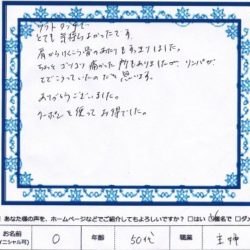 ソフトタッチで、
とても気持ちよかったです。
肩からけんこう骨のあたりもすっきりしました。
ちょっとゴリゴリ痛かった所もありましたが、リンパが
とどこおっていたのだと思います。
ありがとうございました。
クーポンを使ってお得でした。
あなた様の声を、ホームページなどでご紹介してもよろしいですか? □はい 匿名で □ダメ
お名前 O 年齢 50代 職業 主婦
イニシャル可)